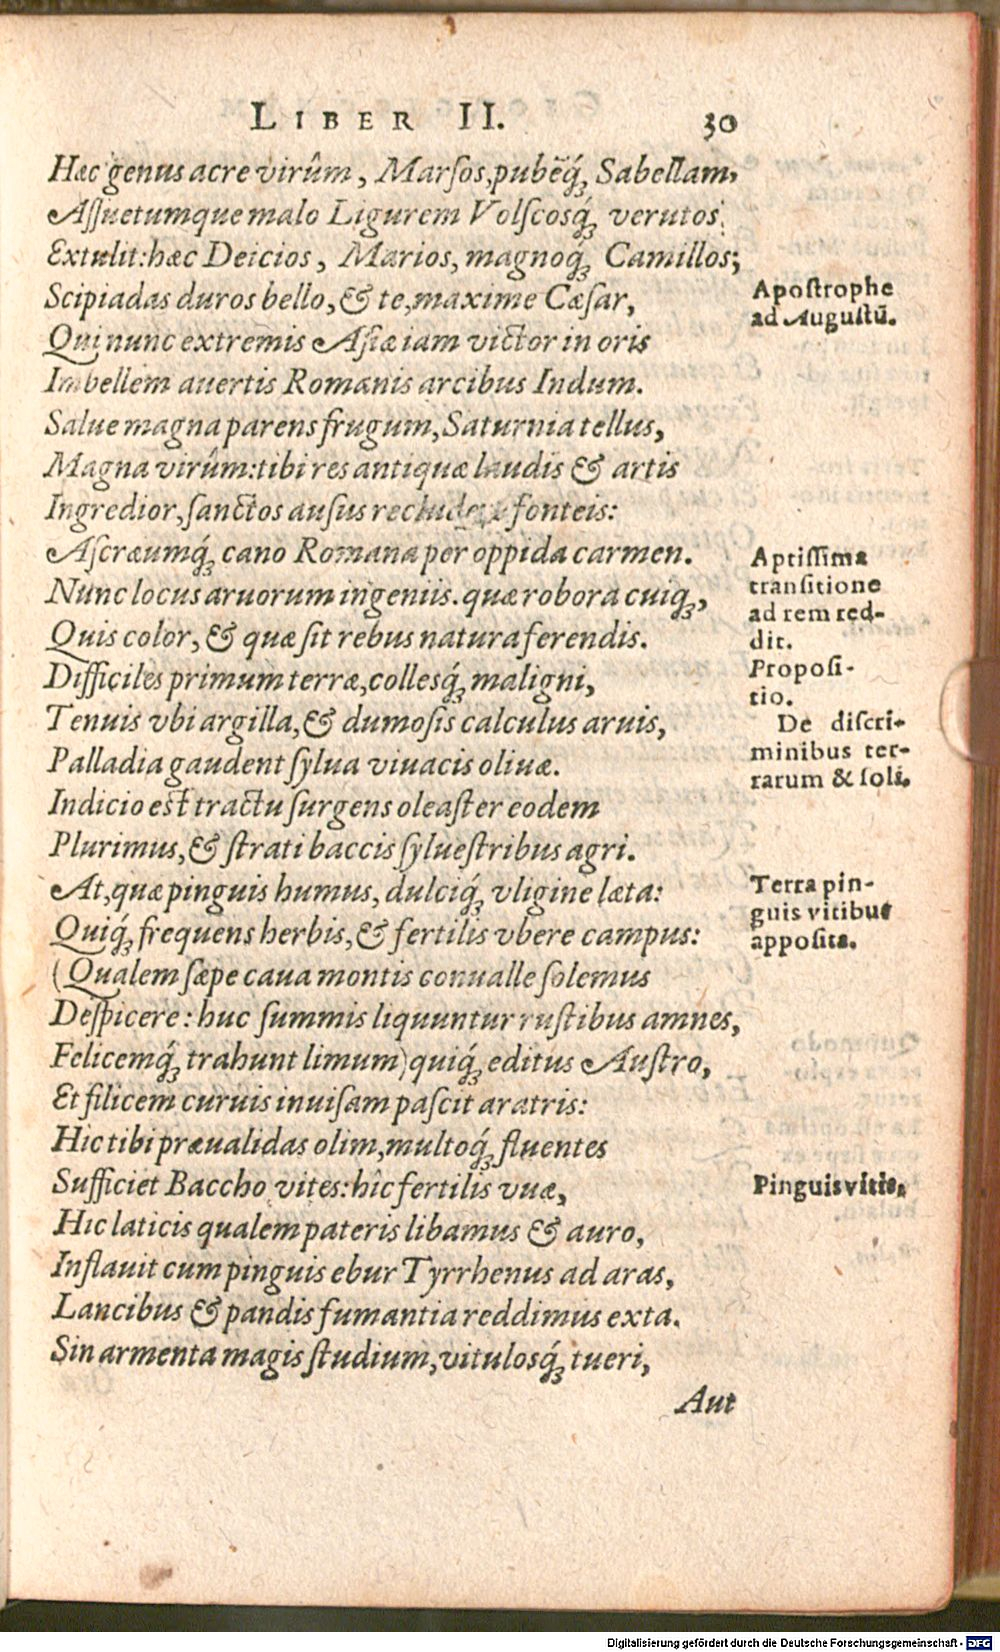 LIBER II. 30
Hæc genus acre virûm, Marſos, pubēq́; Sabellam,
Aſſuetumque malo Ligurem Volſcosq́; verutos
Extulit: hæc Deicios, Marios, magnoq́; Camillos;
Scipiadas duros bello, & te, maxime Cæſar,
Apoſtrophe
ad Auguſtū.
Qui nunc extremis Aſiæ iam victor in oris
Imbellem auertis Romanis arcibus Indum.
Salue magna parens frugum, Saturnia tellus,
Magna virûm: tibi res antiquæ laudis & artis
Ingredior, ſanctos auſus recludere fonteis:
Aſcræumq́; cano Romana per oppida carmen.
Aptiſſima
tranſitione
ad rem red-
dit.
Nunc locus aruorum ingeniis. quæ robora cuiq;,
Quis color, & quæ ſit rebus natura ferendis.
Difficiles primum terræ, colleſq́; maligni,
Propoſi-
tio.
Tenuis vbi argilla, & dumoſis calculus aruis,
De diſcri-
minibus ter-
rarum & ſoli.
Palladia gaudent ſylua viuacis oliuæ.
Indicio eſt tractu ſurgens oleaſter eodem
Plurimus, & ſtrati baccis ſylueſtribus agri.
At, quæ pinguis humus, dulciq́; vligine læta:
Terra pin-
guis vitibus
appoſita.
Quiq́; frequens herbis, & fertilis vbere campus:
(Qualem ſæpe caua montis conualle ſolemus
Deſpicere: huc ſummis liquuntur ruſtibus amnes,
Felicemq́; trahunt limum) quiq́; editus Auſtro,
Et filicem curuis inuiſam paſcit aratris:
Hic tibi præualidas olim, multoq́; fluentes
Sufficiet Baccho vites: hîc fertilis vuæ,
Pinguis vitis.
Hic laticis qualem pateris libamus & auro,
Inflauit cum pinguis ebur Tyrrhenus ad aras,
Lancibus & pandis fumantia reddimus exta.
Sin armenta magis ſtudium, vitulosq́; tueri,
Aut
Digitalisierung gefördert durch die Deutsche Forschungsgemeinschaft - DFG